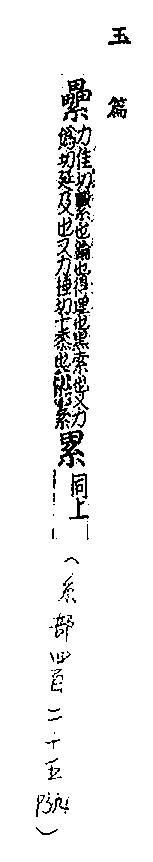 玉篇
纍
力隹切繫也綸也得理也黑索也又力
僞切延及也又力捶切十黍也亦作絫
累
同上
(糸部四百二十五)